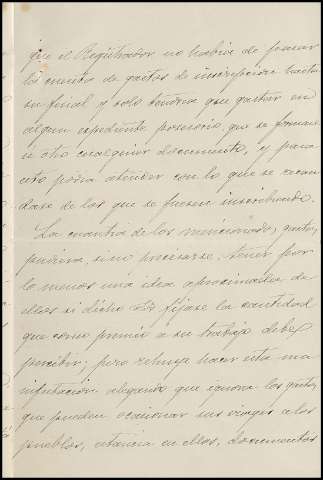 que el Registrador no habia de pasar
la cuenta de gastos de inscripción hasta
su final y solo tendria que gastar en
algun espediente posesorio que se formase
ú otro cualquier documento, y para
esto podia atender con lo que se recau
dase de los que se fuesen inscribiendo.
La cuantia de los mencionados gastos,
pudiera, sino precisarse, tener por
lo menos una idea aproximada de
ellos si dicho Sr. fijase la cantidad
que como premio a su trabajo debe
percibir; pero rehusa hacer esta ma
nifestación alegando que ignora los gastos
que pueden ocasionar sus viages a los
pueblos, estancia en ellos, documentos